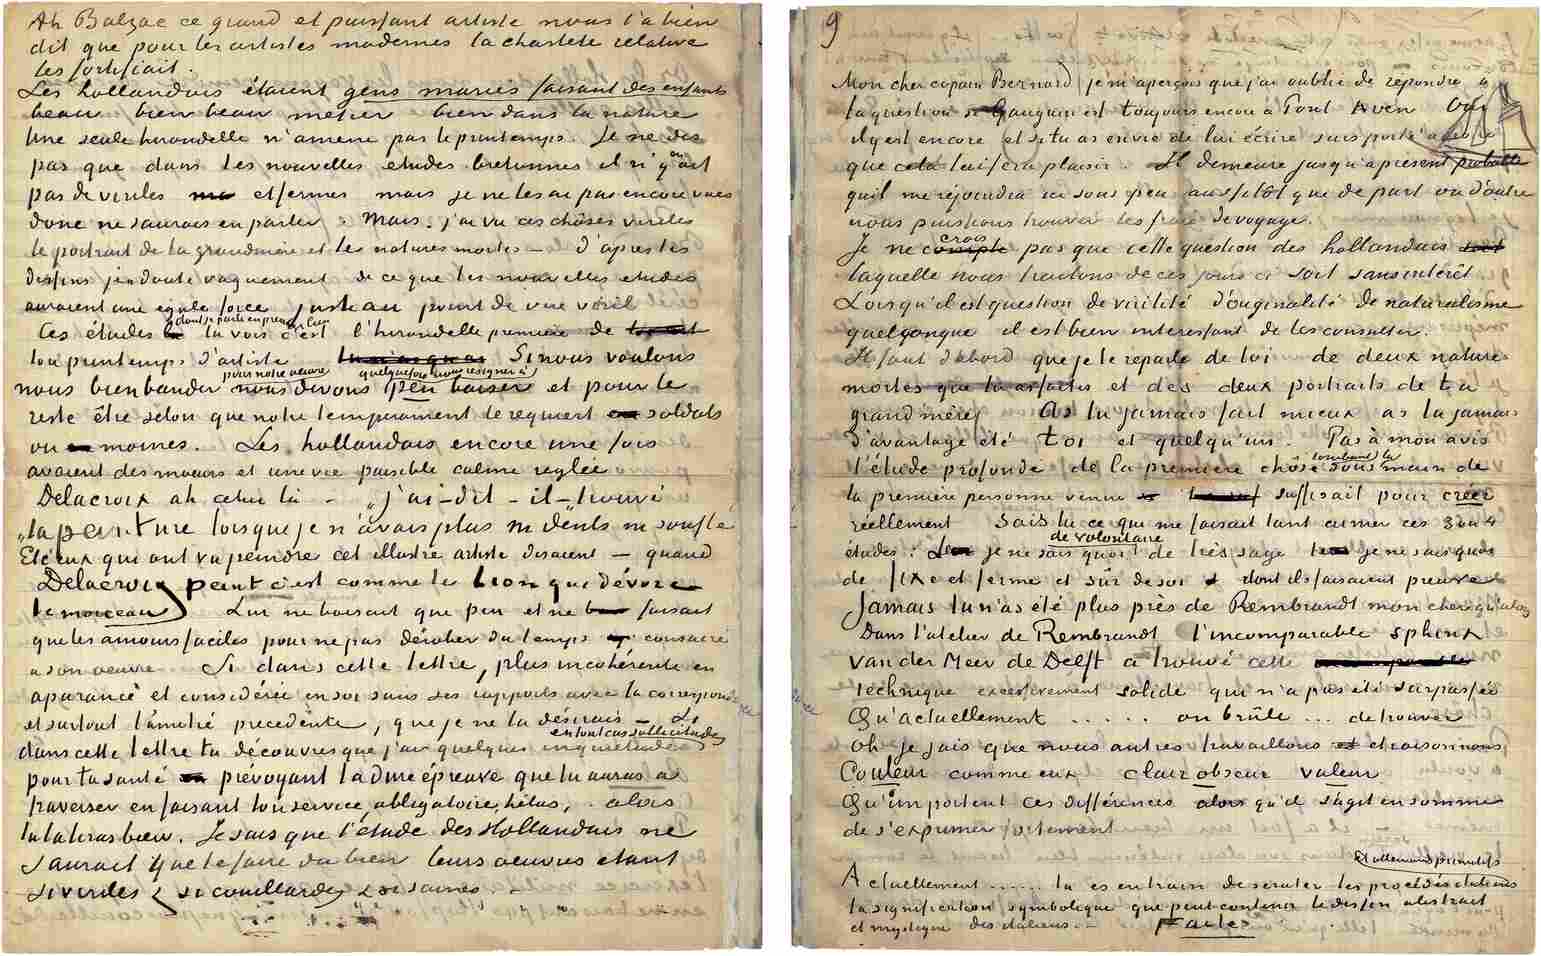 Ah Balzac ce grand et puissant artiste nous l'a bien
dit que pour les artistes modernes la chasteté relative
les fortifiait.
Les hollandais étaient gens mariés faisant des enfants
beau bien beau métier bien dans la nature
Une seule hirondelle n'amène pas le printemps. Je ne dis
pas que dans tes nouvelles etudes bretonnes il n'y en ait
pas de viriles et fermes mais je ne les ai pas encore vues
donc ne saurais en parler. Mais j'ai vu ces choses viriles
le portrait de la grandmère et les natures mortes – D'après tes
dessins je doute vaguement de ce que tes nouvelles etudes
auraient une egale force juste au point de vue viril
Ces études dont je parle en premier lieu
la vois c'est l'hirondelle première de
ton printemps d'artiste Si nous voulons
pour notre oeuvre quelquefois nous resigner à
nous bien bander nous devons peu baiser et pour le
reste être selon que notre temperament le requiert soldats
ou moines. Les hollandais encore une fois
avaient des moeurs et une vie paisible calme reglée
Delacroix ah celui là – „j'ai – dit – il – trouvé
„la peinture lorsque je n'avais plus ni dents ni souffle
Et ceux qui ont vu peindre cet illustre artiste disaient – quand
Delacroix peint c'est comme le lion qui dévore
le morceau Lui ne baisait que peu et ne faisait
que les amours faciles pour ne pas dérober du temps consacré
à son oeuvre. Si dans cette lettre, plus incohérente en
apparance et considérée en soi sans ses rapports avec la correspondance
et surtout l'amitié précédente, que je ne la désirais – Si
en tout cas sollicitudes
dans cette lettre tu découvres que j'ai quelques inquiétudes
pour ta santé prévoyant la dure épreuve que tu auras à
traverser en faisant ton service obligatoire, hélas, alors
tu la liras bien. Je sais que l'étude des Hollandais ne
saurait que te faire du bien leurs oeuvres étant
si viriles & si couillardes & si saines –
9
Mon cher copain Bernard, je m'aperçois que j'ai oublié de repondre à
ta question si Gauguin est toujours encore à Pont Aven Oui
il y est encore et si tu as envie de lui écrire suis porté à croire
que cela lui fera plaisir. Il demeure jusqu'à présent probable
qu'il me rejoindra ici sous peu aussitôt que de part ou d'autre
nous puissions trouver les frais de voyage.
crois
Je ne compte pas que cette question des hollandais
laquelle nous traitons de ces jours ci soit sans intérêt
Lorsqu'il est question de virilité d'originalité de naturalisme
quelconque il est bien interessant de les consulter.
Il faut d'abord que je te reparle de toi de deux natures
mortes que tu as faites et des deux portraits de ta
grand mère As tu jamais fait mieux as tu jamais
d'avantage été toi et quelqu'un. Pas à mon avis
tombant la
l'étude profonde de la première chose sous main de
la première personne venue suffisait pour créer
réellement Sais tu ce qui me faisait tant aimer ces 3 ou 4
de volontaire
études: je ne sais quoi de très sage je ne sais quoi
de fixe et ferme et sûr de soi dont ils faisaient preuve
Jamais tu n'as été plus près de Rembrandt mon cher qu'alors
Dans l'atelier de Rembrandt l'incomparable sphinx
Van der Meer de Delft a trouvé cette
technique excessivement solide qui n'a pas été surpassée
Qu'actuellement ..... on brûle ... de trouver
Oh je sais que nous autres travaillons et raisonnons
Couleur comme eux clair obscur valeur
Qu'importent ces différences alors qu'il s'agit en somme
de s'exprimer fortement
et allemands primitifs
Actuellement ..... tu es en train de scruter les procédés italiens
la signification symbolique que peut contenir le dessin abstrait
et mystique des italiens – Faites